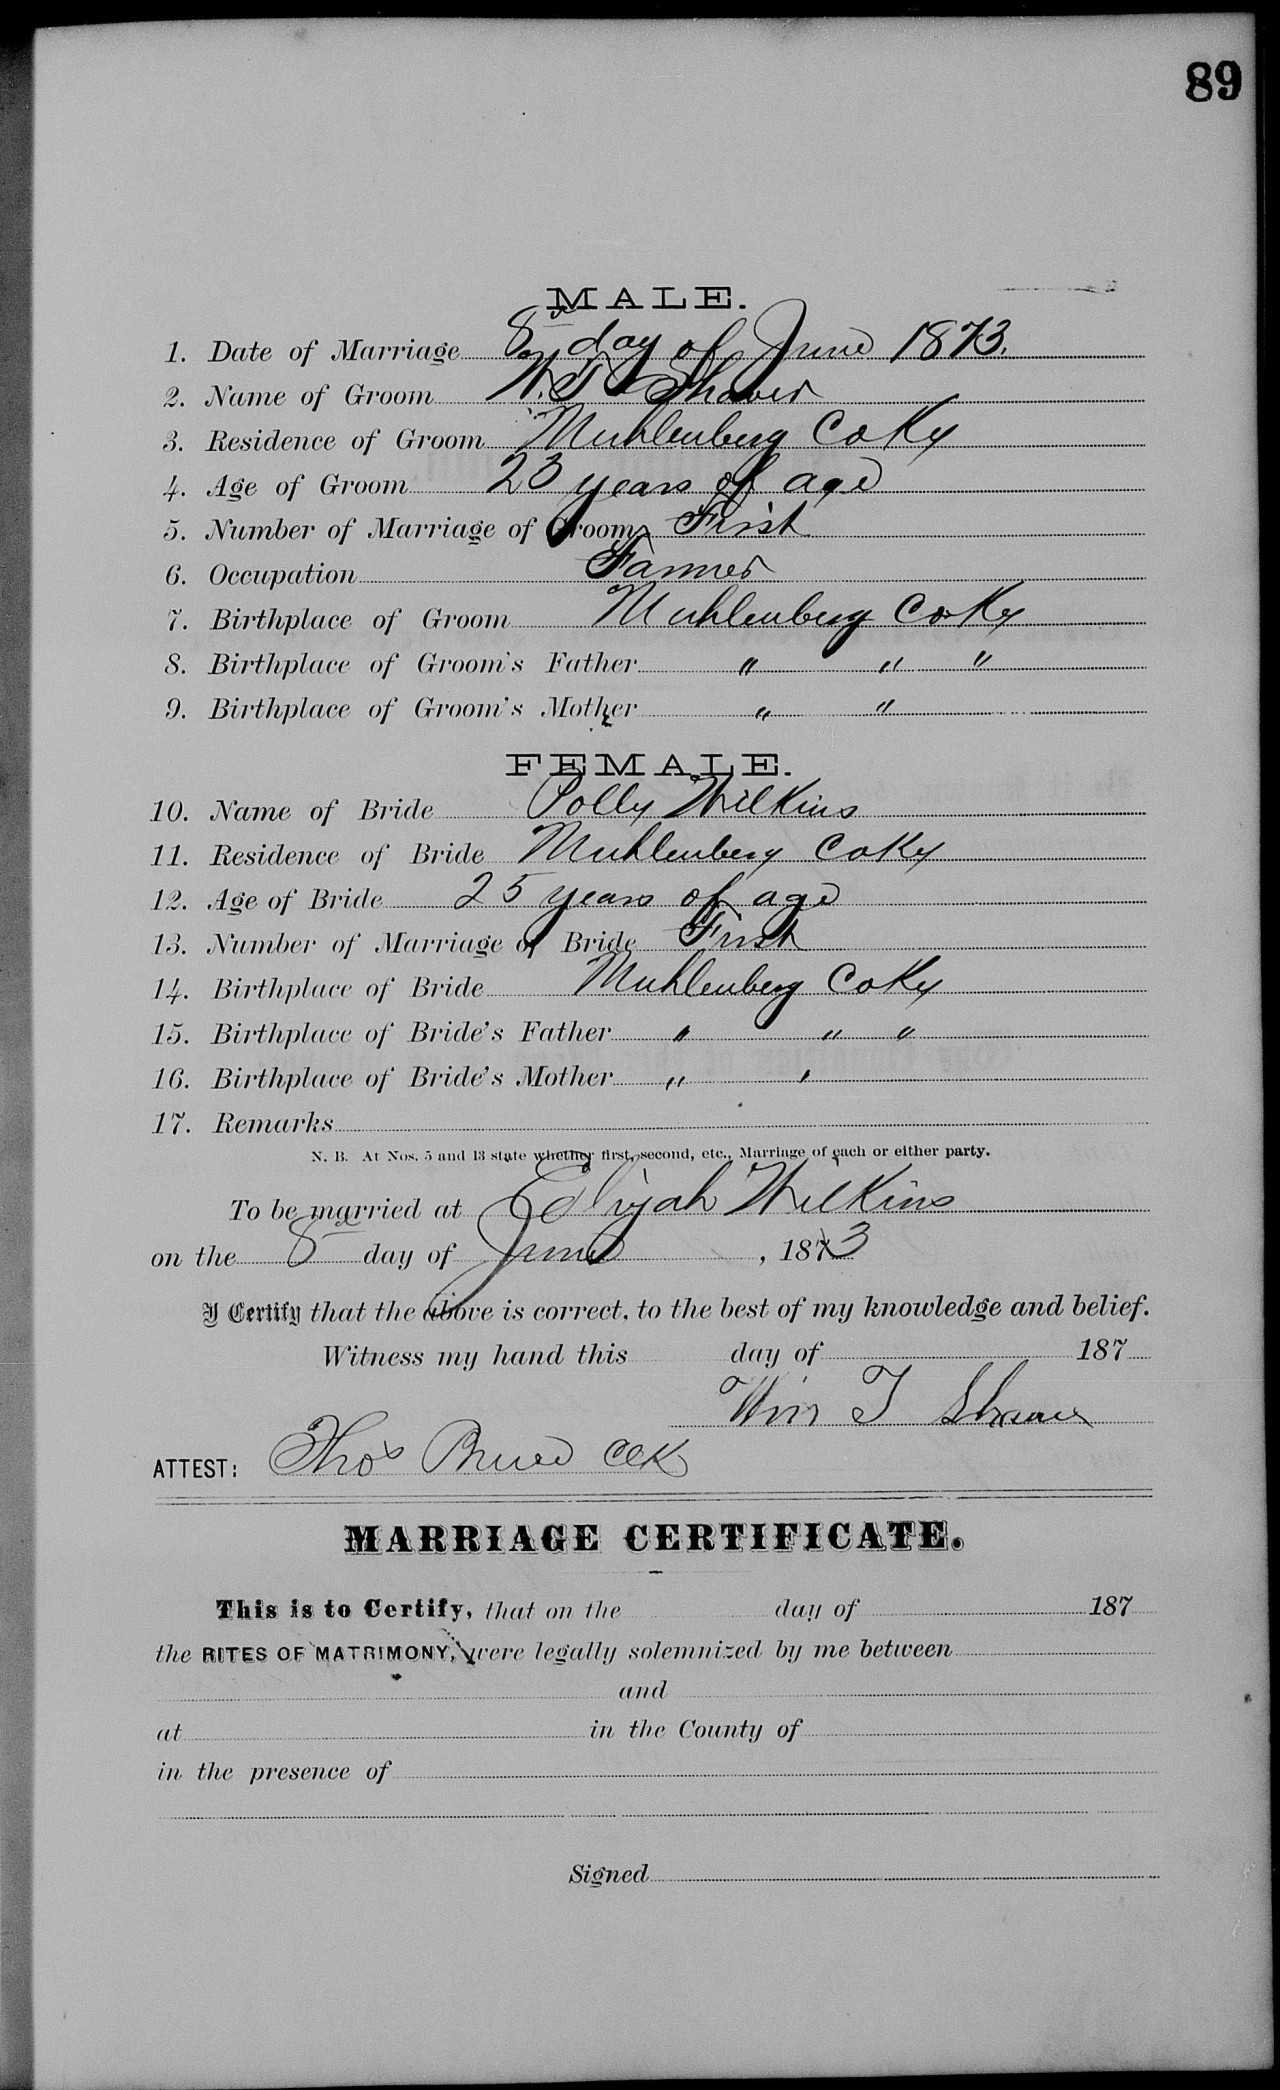 89
MALE.
1. Date of Marriage 8th day of June 1873.
2. Name of Groom W. T. Shaver
3. Residence of Groom Muhlenberg Co Ky
4. Age of Groom 23 years of age
5. Number of Marriage of Groom First
6. Occupation Farmer
7. Birthplace of Groom Muhlenberg Co Ky
8. Birthplace of Groom's Father " " "
9. Birthplace of Groom's Mother " "
FEMALE.
10. Name of Bride Polly Wilkins
11. Residence of Bride Muhlenberg Co Ky
12. Age of Bride 25 years of age
13. Number of Marriage of Bride First
14. Birthplace of Bride Muhlenberg Co Ky
15. Birthplace of Bride's Father " " "
16. Birthplace of Bride's Mother " "
17. Remarks
N. B. At Nos. 5 and 13 state whether first, second, etc., Marriage of each or either party.
To be married at Elijah Wilkins
on the 8th day of June, 1873
I Certify that the above is correct, to the best of my knowledge and belief.
Witness my hand this day of 187
Wm T Shaver
ATTEST: Thos Bruce Clk
MARRIAGE CERTIFICATE.
This is to Certify, that on the day of 187
the RITES OF MATRIMONY, were legally solemnized by me between
and
at in the County of
in the presence of
Signed